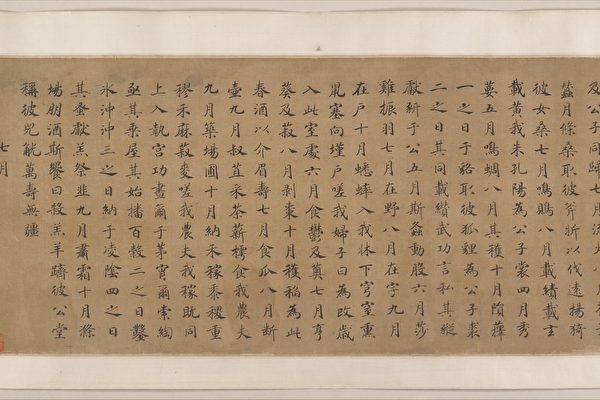 及公子同歸七月流火八月萑葦
蠶月條桑取彼斧斨以伐遠揚猗
彼女桑七月鳴鵙八月載績載玄
載黃我朱孔陽為公子裳四月秀
葽五月鳴蜩八月其穫十月隕蘀
一之日于貉取彼狐貍為公子裘
二之日其同載纘武功言私其豵
獻豜于公五月斯螽動股六月莎
雞振羽七月在野八月在宇九月
在戶十月蟋蟀入我牀下穹窒熏
鼠塞向墐戶嗟我婦子曰為改歲
入此室處六月食鬱及薁七月亨
葵及菽八月剝棗十月穫稻為此
春酒以介眉壽七月食瓜八月斷
壺九月叔苴采荼薪樗食我農夫
九月築場圃十月納禾稼黍稷重
穋禾麻菽麥嗟我農夫我稼既同
上入執宮功晝爾于茅宵爾索綯
亟其乘屋其始播百穀二之日鑿
冰沖沖三之日納于凌陰四之日
其蚤獻羔祭韭九月肅霜十月滌
場朋酒斯饗曰殺羔羊躋彼公堂
稱彼兕觥萬壽無疆
七月